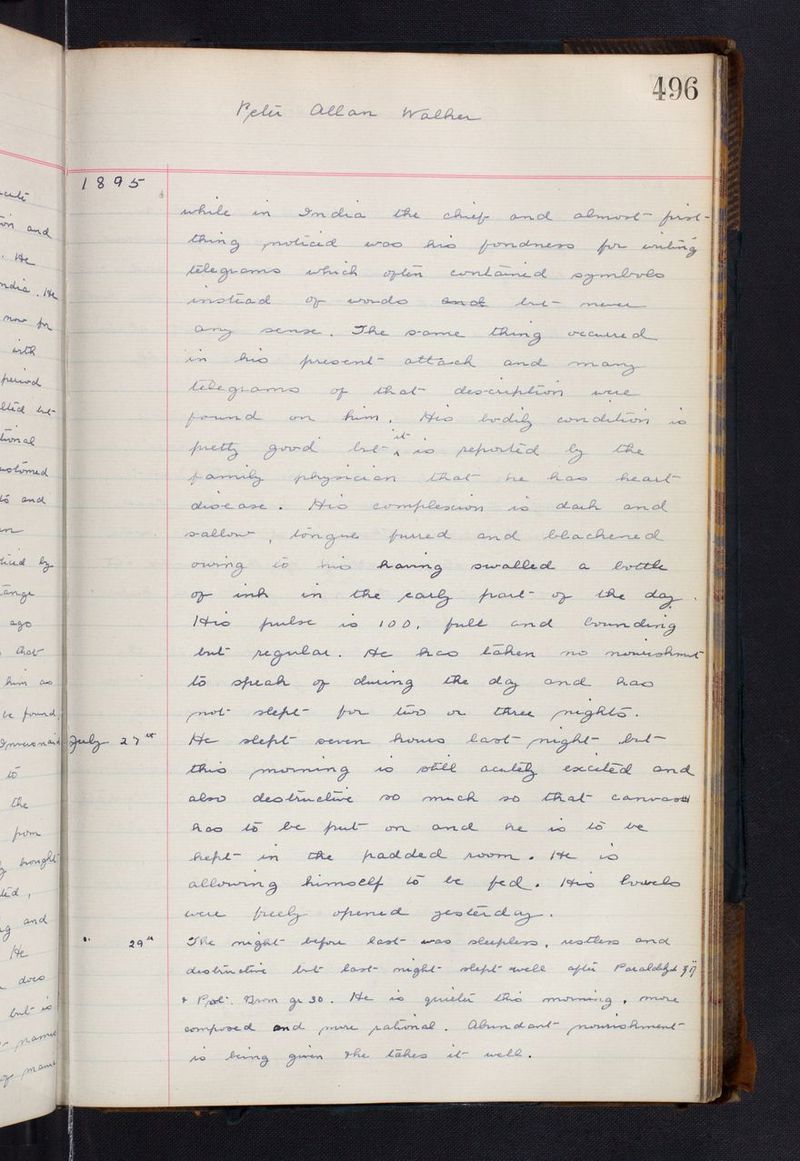 496
Peter Allan Walker
1895
while in India the chief and almost first
thing noticed was his fondness for writing
telegrams which often contained symbols
instead of words and but never
any sense. The same thing occurred
in his present attack and many
telegrams of that description were
found on him. His bodily condition is
pretty good but it is reported by the
family physician that he has heart
disease. His complexion is dark and
sallow, tongue furred and blackened
owing to his having swalled a bottle
of ink in the early part of the day.
His pulse is 100, full and bounding
but regular. He has taken no nourishment
to speak of during the day and has
not slept for two or three nights.
July 27th He slept seven hours last night but
this morning is still acutely excited and
also destructive so much so that canvas
has to be put on and he is to be
kept in the padded room. He is
allowing himself to be fed. His bowels
were freely opened yesterday.
" 29th The night before last was sleepless, restless and
destructive but last night slept well after Paraldehyd ʒij
& Pot. Brom gr 30. He is quieter this morning, more
composed and more rational. Abundant nourishment
is being given & he takes it well.